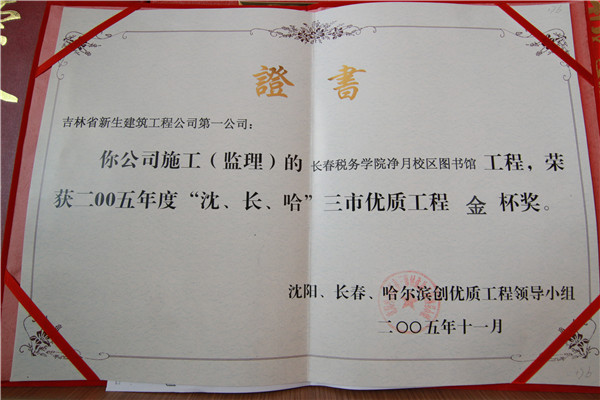 證書
吉林省新生建筑工程公司第一公司：
你公司施工（监理）的 长春税务学院净月校区图书馆 工程，荣
获二00五年度“沈、长、哈”三市优质工程 金 杯奖。
沈阳、长春、哈尔滨创优质工程领导小组
二〇〇五年十一月